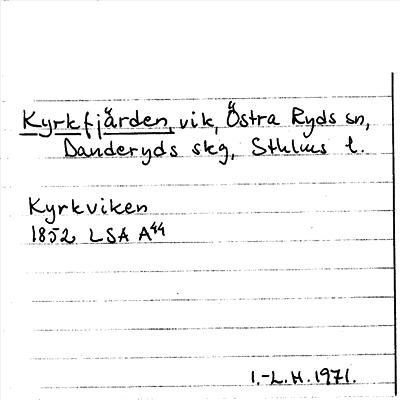 Kyrkfjärden, vik, Östra Ryds sn,
Danderyds skg, Sthlms l.
Kyrkviken
1852 LSA A44
I.-L.H. 1971.